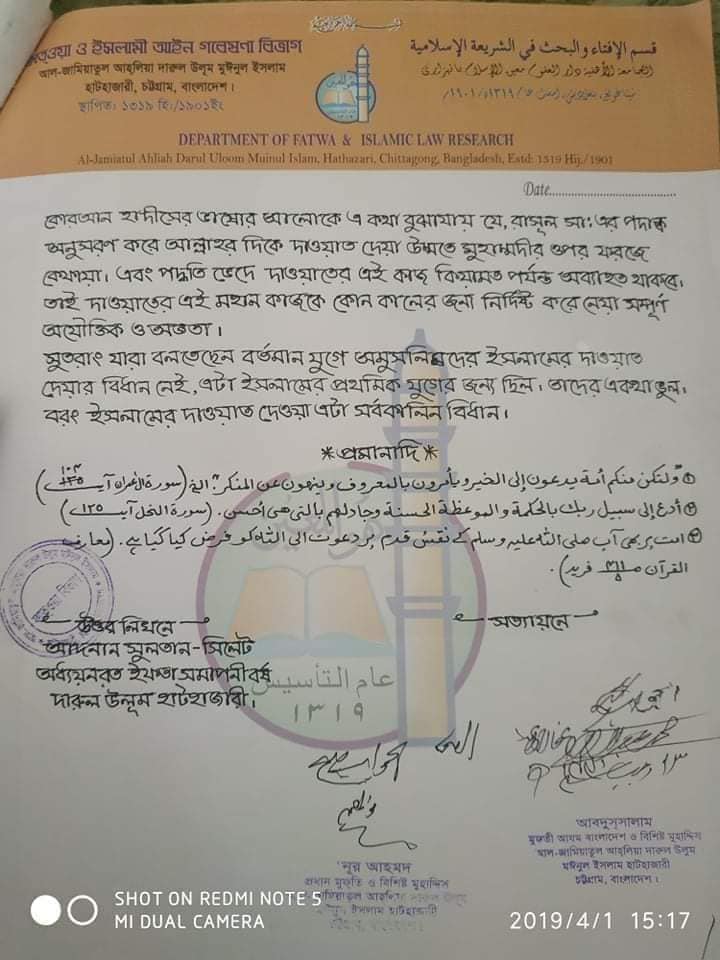 ফতওয়া ও ইসলামী আইন গবেষণা বিভাগ
আল-জামিয়াতুল আহলিয়া দারুল উলূম মুঈনুল ইসলাম
হাটহাজারী, চট্টগ্রাম, বাংলাদেশ।
স্থাপিত: ১৩১৯ হিঃ/১৯০১ইং
قسم الإفتاء والبحث في الشريعة الإسلامية
الجامعة الأهلية دار العلوم معين الإسلام هاتهزاري
DEPARTMENT OF FATWA & ISLAMIC LAW RESEARCH
Al-Jamiatul Ahliah Darul Uloom Muinul Islam, Hathazari, Chittagong, Bangladesh, Estd: 1319 Hij./1901
Date
কোরআন হাদীসের ভাষ্যের আলোকে এ কথা বুঝাযায় যে, রাসূল সা: এর পদাঙ্ক
অনুসরণ করে আল্লাহর দিকে দাওয়াত দেয়া উম্মতে মুহাম্মদীর ওপর ফরজে
কেফায়া। এবং পদ্ধতি ভেদে দাওয়াতের এই কাজ কিয়ামত পর্যন্ত অব্যাহত থাকবে।
তাই দাওয়াতের এই মহান কাজকে কোন কালের জন্য নির্দিষ্ট করে নেয়া সম্পূর্ণ
অযৌক্তিক ও অজ্ঞতা।
সুতরাং যারা বলতেছেন বর্তমান যুগে অমুসলিমদের ইসলামের দাওয়াত
দেয়ার বিধান নেই, এটা ইসলামের প্রথমিক যুগের জন্য ছিল। তাদের একথা ভুল।
বরং ইসলামের দাওয়াত দেওয়া এটা সর্বকালিন বিধান।
*প্রমানাদি*
① ولتكن منكم أمة يدعون إلى الخير ويأمرون بالمعروف وينهون عن المنكر" الخ (سورة آل عمران آيت ١٠٤)
② أدع إلى سبيل ربك بالحكمة والموعظة الحسنة وجادلهم بالتي هي أحسن. (سورة النحل آيت ١٢٥)
③ امت پر بھی آپ صلی اللہ علیہ وسلم کے نقش قدم پر دعوت الی اللہ کو فرض کیا گیا ہے. (معارف
القرآن
উত্তর লিখনে
আদনান সুলতান-সিলেট
অধ্যয়নরত ইফতা সমাপনীবর্ষ
দারুল উলূম হাটহাজারী।
সত্যায়নে
عام التأسيس
١٣١٩
নূর আহমদ
প্রধান মুফতি ও বিশিষ্ট মুহাদ্দিস
জামিয়া আহলিয়া দারুল উলূম
মুঈনুল ইসলাম হাটহাজারী
আবদুস্সালাম
মুফতী আযম বাংলাদেশ ও বিশিষ্ট মুহাদ্দিস
আল-জামিয়াতুল আহ্‌লিয়া দারুল উলূম
মুঈনুল ইসলাম হাটহাজারী
চট্টগ্রাম, বাংলাদেশ।
SHOT ON REDMI NOTE 5
MI DUAL CAMERA
2019/4/1 15:17